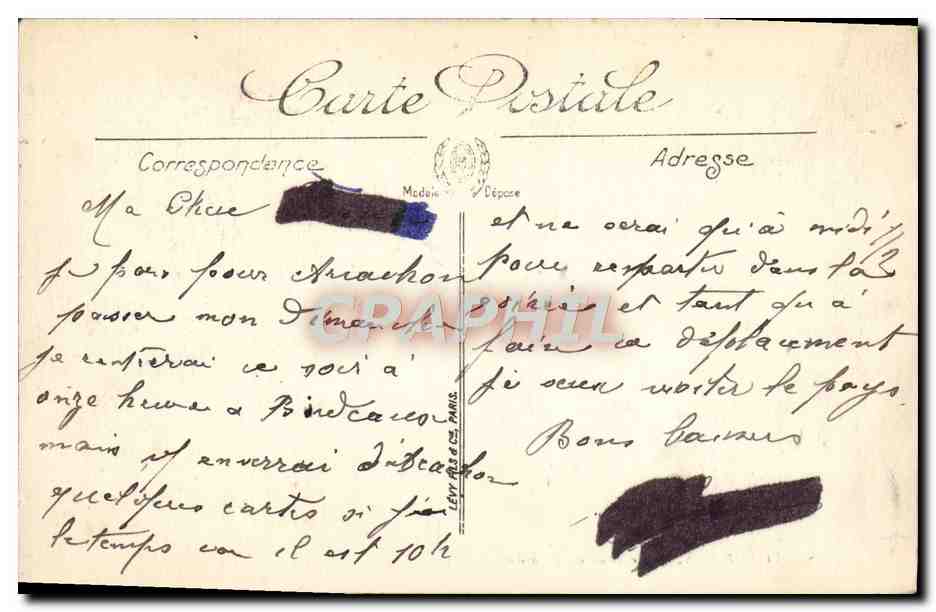 Carte Postale
Correspondance
Adresse
Modèle Déposé
Ma Chère
je pars pour Arcachon
passer mon Dimanche
je rentrerai ce soir à
onze heure a Bordeaux
mais j'enverrai d'Arcachon
quelques cartes si j'ai
le temps car il est 10h
LEVY FILS & Cie, PARIS.
et ne serai qu'à midi 1/2
pour repartir dans la
soirée et tant qu'à
faire ce déplacement
je veux visiter le pays
Bons baisers
CPAPHIL